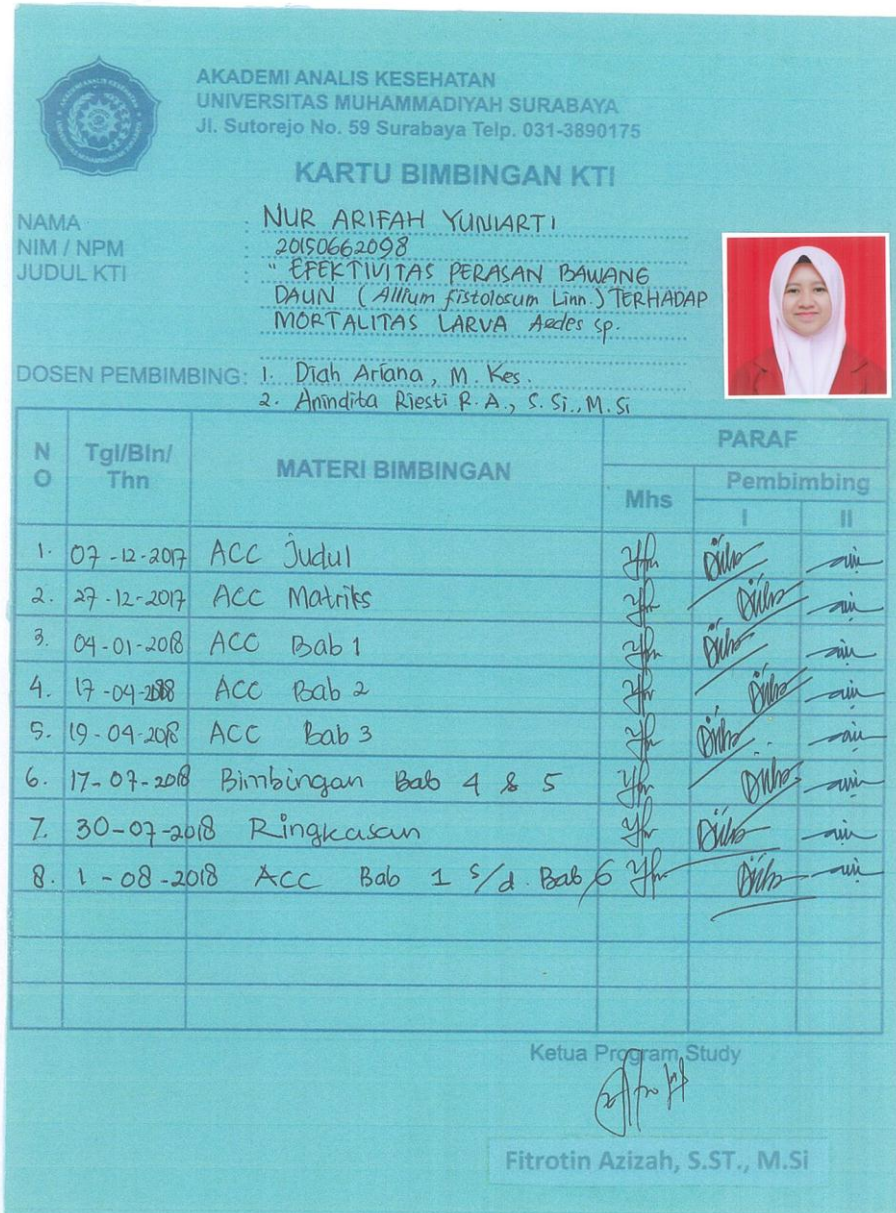 AKADEMI ANALIS KESEHATAN
UNIVERSITAS MUHAMMADIYAH SURABAYA
Jl. Sutorejo No. 59 Surabaya Telp. 031-3890175
KARTU BIMBINGAN KTI
NAMA : NUR ARIFAH YUNIARTI
NIM / NPM : 20150662098
JUDUL KTI : " EFEKTIVITAS PERASAN BAWANG
DAUN (Allium fistolosum Linn.) TERHADAP
MORTALITAS LARVA Aedes sp.
DOSEN PEMBIMBING: 1. Diah Ariana, M. Kes.
2. Anindita Riesti R. A., S. Si., M. Si
NO Tgl/Bln/Thn MATERI BIMBINGAN PARAF
Mhs Pembimbing
I II
1. 07-12-2017 ACC Judul
2. 27-12-2017 ACC Matriks
3. 04-01-2018 ACC Bab 1
4. 17-04-2018 ACC Bab 2
5. 19-04-2018 ACC Bab 3
6. 17-07-2018 Bimbingan Bab 4 & 5
7. 30-07-2018 Ringkasan
8. 1-08-2018 ACC Bab 1 s/d. Bab 6
Ketua Program Study
Fitrotin Azizah, S.ST., M.Si